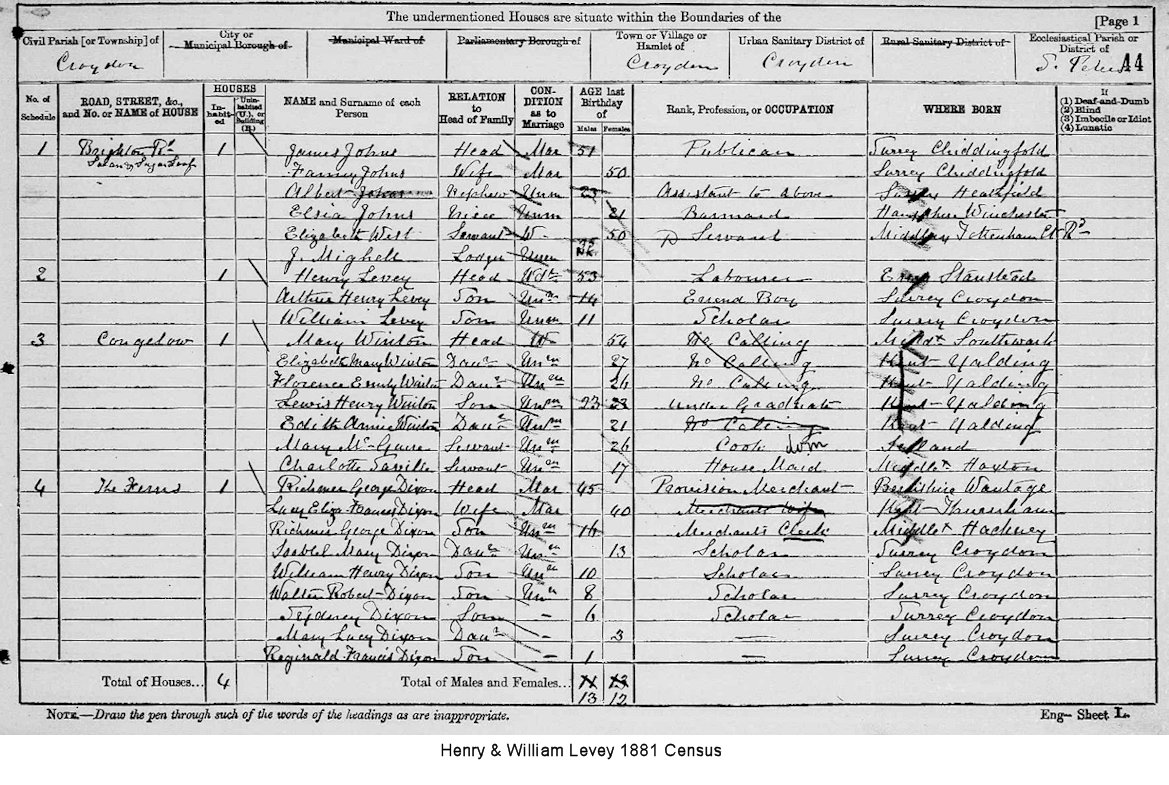 The undermentioned Houses are situate within the Boundaries of the
[Page 1
Civil Parish [or Township] of
Croydon
City or Municipal Borough of
Municipal Ward of
Parliamentary Borough of
Town or Village or Hamlet of
Croydon
Urban Sanitary District of
Croydon
Rural Sanitary District of
Ecclesiastical Parish or District of
S. Peters 44
No. of Schedule
ROAD, STREET, &c., and No. or NAME of HOUSE
HOUSES
Inhabited
Uninhabited (U.), or Building (B.)
NAME and Surname of each Person
RELATION to Head of Family
CONDITION as to Marriage
AGE last Birthday of
Males Females
Rank, Profession, or OCCUPATION
WHERE BORN
If
(1) Deaf-and-Dumb
(2) Blind
(3) Imbecile or Idiot
(4) Lunatic
1 Brighton Rd 1 James Johns Head Mar 51 Publican Surrey Chiddingfold
Fanny Johns Wife Mar 50 Surrey Chiddingfold
Albert Johns Nephew Unm 23 Assistant to above Heathfield
Elsia Johns Niece Unm 21 Barmaid Winchester
Elizabeth West Servant W 50 D Servant Tottenham Ct Rd
J. Mighell Lodger Unm
2 1 Henry Levey Head 53 Labourer Essex Stanstead
Arthur Henry Levey Son Unm 14 Errend Boy Surrey Croydon
William Levey Son Unm 11 Scholar Surrey Croydon
3 Congelow 1 Mary Winton Head W 54 No Calling Southwark
Elizabeth Mary Winton Daur Unm 27 No Calling Kent Yalding
Florence Emily Winton Daur Unm 26 No Calling Kent Yalding
Lewis Henry Winton Son Unm 23 Under Graduate Kent Yalding
Edith Annie Winton Daur Unm 21 No Calling Kent Yalding
Mary Mc Guire Servant Unm 26 Cook Ireland
Charlotte Saville Servant Unm 17 House Maid Middlx Hoxton
4 The Ferns 1 Richmer George Dixon Head Mar 45 Provision Merchant Berkshire Wantage
Lucy Eliza Francis Dixon Wife Mar 40 Merchants Wife Kent
Richmer George Dixon Son Unm 16 Merchants Clerk Middlx Hackney
Isobel Mary Dixon Daur Unm 13 Scholar Surrey Croydon
William Henry Dixon Son Unm 10 Scholar Surrey Croydon
Walter Robert Dixon Son Unm 8 Scholar Surrey Croydon
Sydney Dixon Son - 6 Scholar Surrey Croydon
Mary Lucy Dixon Daur - 3 — Surrey Croydon
Reginald Francis Dixon Son - 1 Surrey Croydon
Total of Houses... 4
Total of Males and Females...
13 12
NOTE.—Draw the pen through such of the words of the headings as are inappropriate.
Eng— Sheet L.
Henry & William Levey 1881 Census